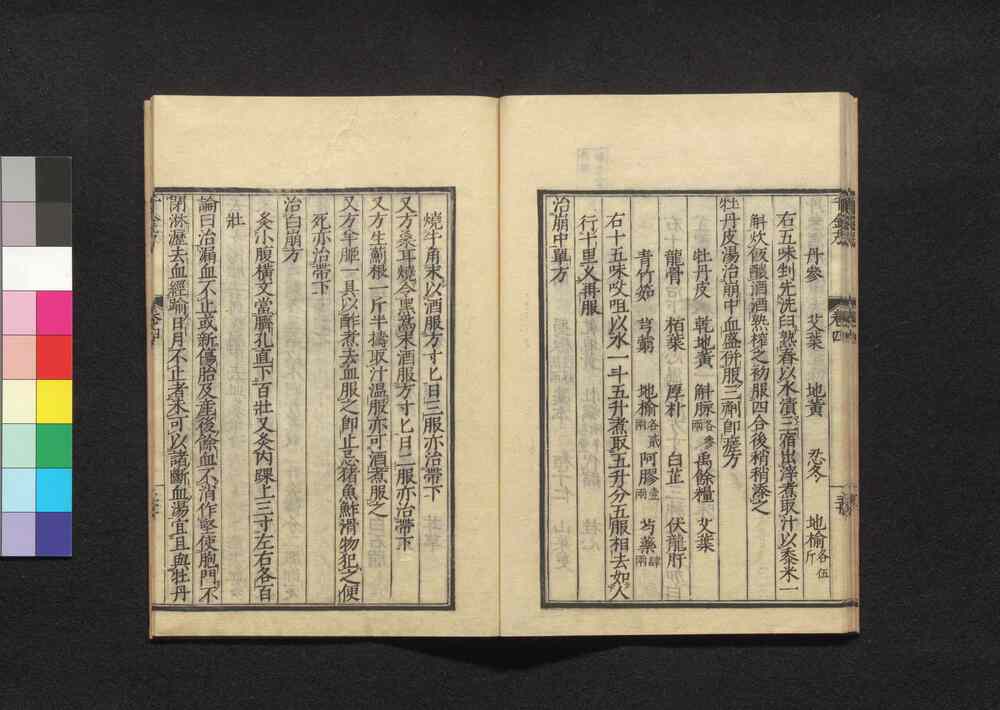 丹參 艾葉 地黃 忍冬 地榆各伍斤
右五味剉先洗臼熟舂以水漬三宿出滓煮取汁以黍米一
斛炊飯釀酒酒熟榨之初服四合後稍稍添之
牡丹皮湯治崩中血盛併服三劑即瘥方
牡丹皮 乾地黃 斛脉各參兩 禹餘糧 艾葉
龍骨 栢葉 厚朴 白芷 伏龍肝
青竹茹 芎藭 地榆各貳兩 阿膠壹兩 芍藥肆兩
右十五味㕮咀以水一斗五升煮取五升分五服相去如人
行十里又再服
治崩中單方
燒牛角末以酒服方寸匕日三服亦治帶下
又方桑耳燒令黑爲末酒服方寸匕日二服亦治帶下
又方生薊根一斤半擣取汁溫服亦可酒煮服之
又方羊胵一具以酢煮去血服之即止忌猪魚鮓滑物犯之便
死亦治帶下
治白崩方
灸小腹橫文當臍孔直下百壯又灸內踝上三寸左右各百
壯
論曰治漏血不止或新傷胎及產後餘血不消作堅使胞門不
閉淋瀝去血經踰日月不止者未可以諸斷血湯宜且與牡丹
卷四